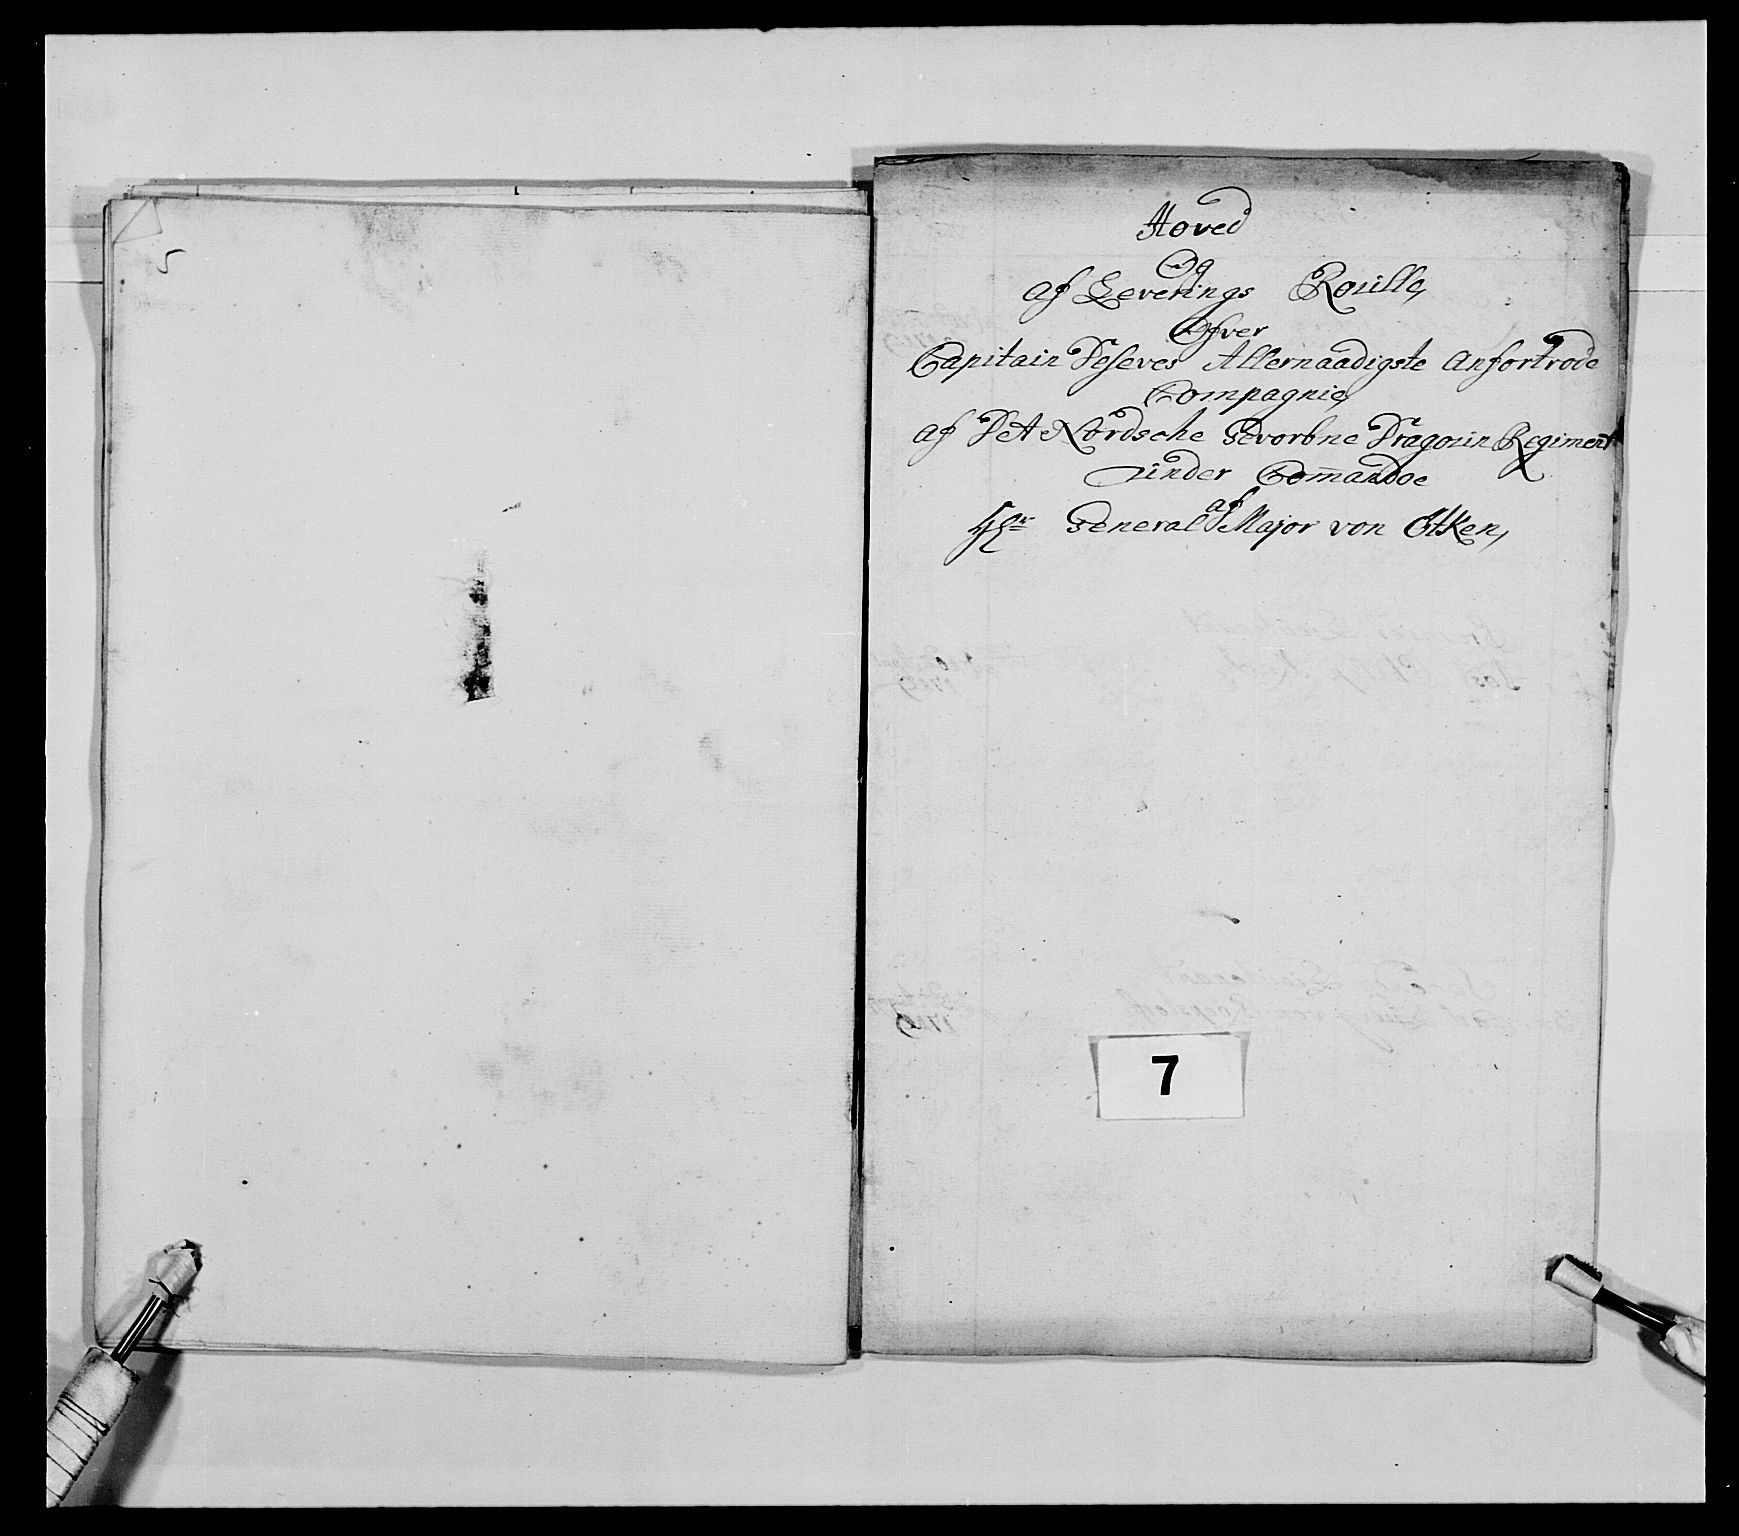 5
Hoved
Og
af Leverings Roulle,
Ofver
Capitain Teseves Allernaadigste Anfortrode
Compagnie,
af Det Nordsche Gevorbne Dragoun Regiment
under Com̄andoe
af
Hr General Major von Ötken,
7